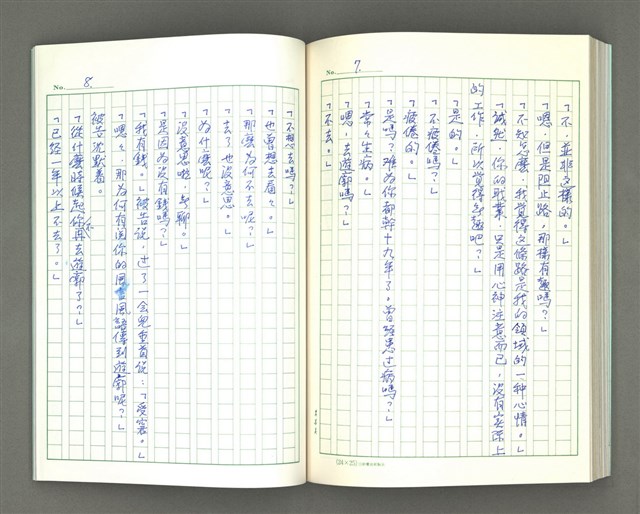 No. 7.
「不，並非这樣的。」
「嗯，但是阻止路，那樣有趣嗎？」
「不知怎麼，我覺得这條路是我的領域的一种心情。」
「誠然，你的職業，只是用心神注意而已，沒有实际上
的工作，所以覺得無趣吧？」
「是的。」
「不疲倦嗎？」
「疲倦的。」
「是嗎？难為你都幹十九年了，曾経患过病嗎？」
「常々生病。」
「嗯，去遊廓嗎？」
「不去。」
(24×25)
No. 8.
「不想去嗎？」
「也曾想去看々。」
「那麼為何不去呢？」
「去了也沒意思。」
「為什麼呢？」
「沒意思啦，無聊。」
「是因為沒有錢嗎？」
「我有錢。」被告说，过了一会兒重着说：「受窘。」
「嗯々，那為何有関你的風言風語傳到遊廓呢？」
被告沈默着。
「從什麼時候起你不再去遊廓了？」
「已経一年以上不去了。」